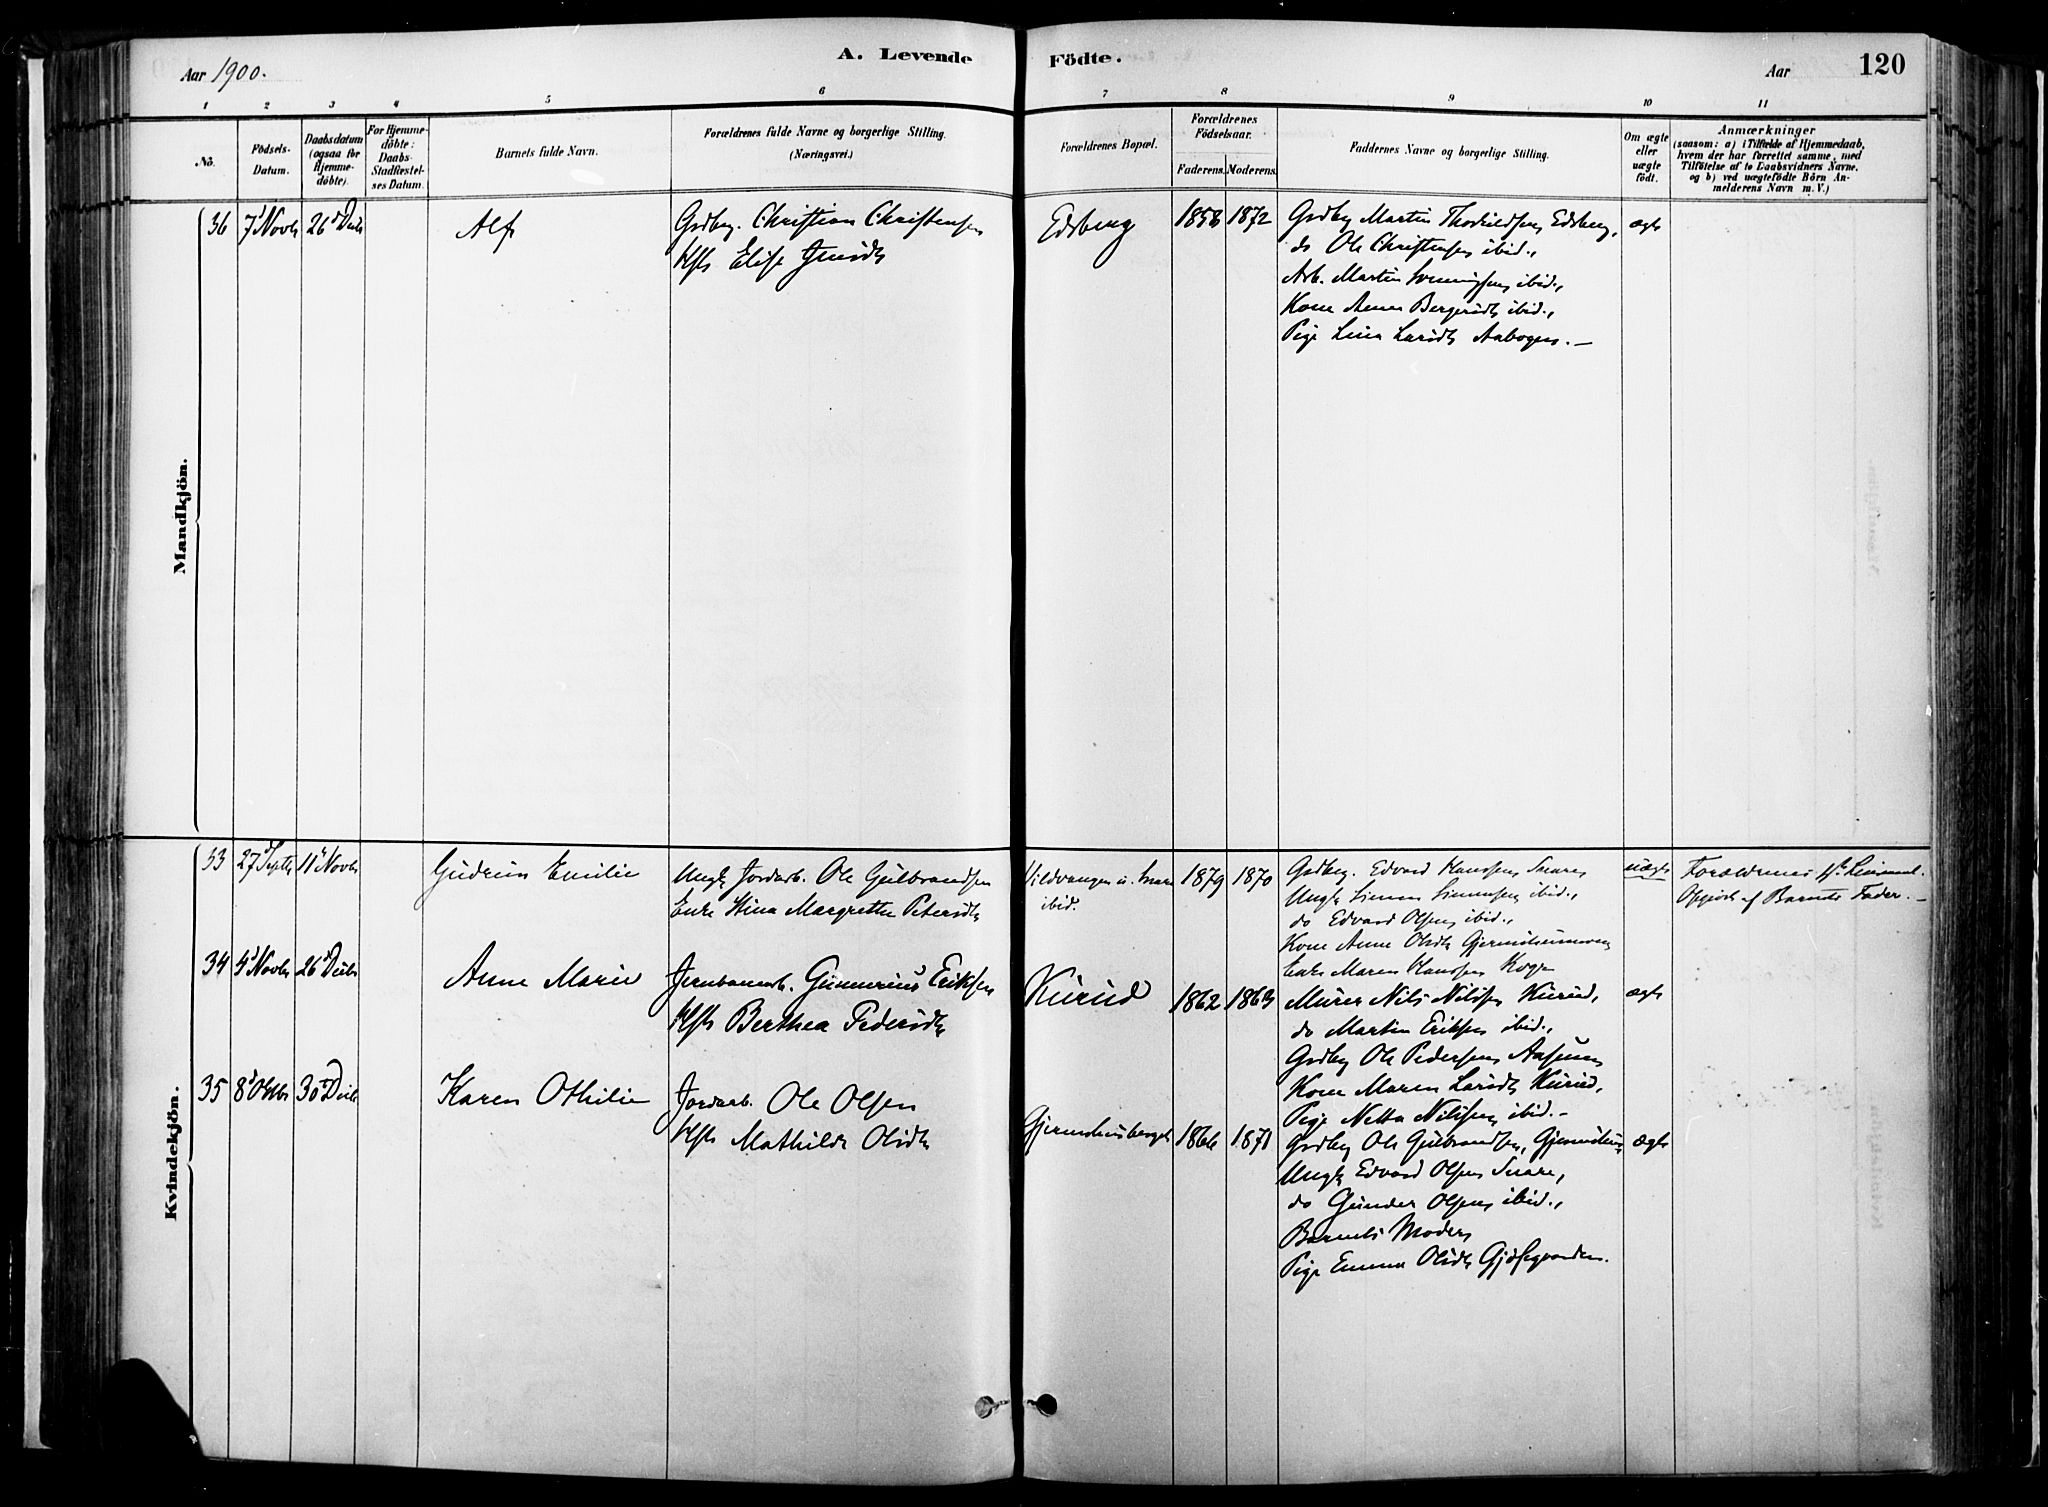 Aar 1900.
A. Levende Födte.
Aar
120
1 2 3 4 5 6 7 8 9 10 11
No.
Födsels-Datum.
Daabsdatum (ogsaa for Hjemmedöbte).
For Hjemmedöbte: Daabs-Stadfæstelses Datum.
Barnets fulde Navn.
Forældrenes fulde Navne og borgerlige Stilling. (Næringsvei.)
Forældrenes Bopæl.
Forældrenes Födselsaar.
Faderens. Moderens.
Faddernes Navne og borgerlige Stilling.
Om ægte eller uægte födt.
Anmærkninger
(saasom: a) i Tilfælde af Hjemmedaab, hvem der har forrettet samme, med Tilföielse af to Daabsvidners Navne, og b) ved uægtefödte Börn Anmelderens Navn m. V.)
Mandkjön.
36 7 Novb 26 Decb Alf
Grdbrg. Christian Christensen
Elise
Edsberg 1858 1872
Grdbrg Martin Edsberg,
do Ole Christensen ibid.,
Arb. Martin ibid.,
Kone Anna ibid.,
Pige Lina Larsdt Aabogen.—
ægte
Kvindekjön.
33 27 Septb 11 Novb Gudrun Emilie
Ungk Jordarb. Ole Gulbrandsen
Enke Stina Margrethe Petersdt
Vildvangen u. Snare
ibid.
1879 1870
Grdbrg. Edvard Hanssen Snare
Ungk Simen Simensen ibid.,
do Edvard Olsen ibid.,
Kone Anne Olsdt
Enke Maren Hanssen
uægte
Forældrenes
Opgivet af Barnets Fader.—
34 4 Novb 26 Decb Anne Marie
Jernbanearb. Gunnerius Eriksen
Berthea Pedersdt
Kurud 1862 1865
Murer Nils Nilssen Kurud,
do Martin Eriksen ibid.,
Grdbrg Ole Pedersen Aasum
Kone Maren Larsdt Kurud,
Pige Netta Nilssen ibid.—
ægte
35 8 Oktb 30 Decb Karen Othilie
Jordarb. Ole Olsen
Mathilde Olsdt
Gjermshusberget 1866 1871
Grdbrg Ole Gulbrandsen, Gjermshus
Ungk Edvard Olsen Snare,
do Gunder Olsen ibid.,
Barnets Moder
Pige Emma Olsdt
ægte